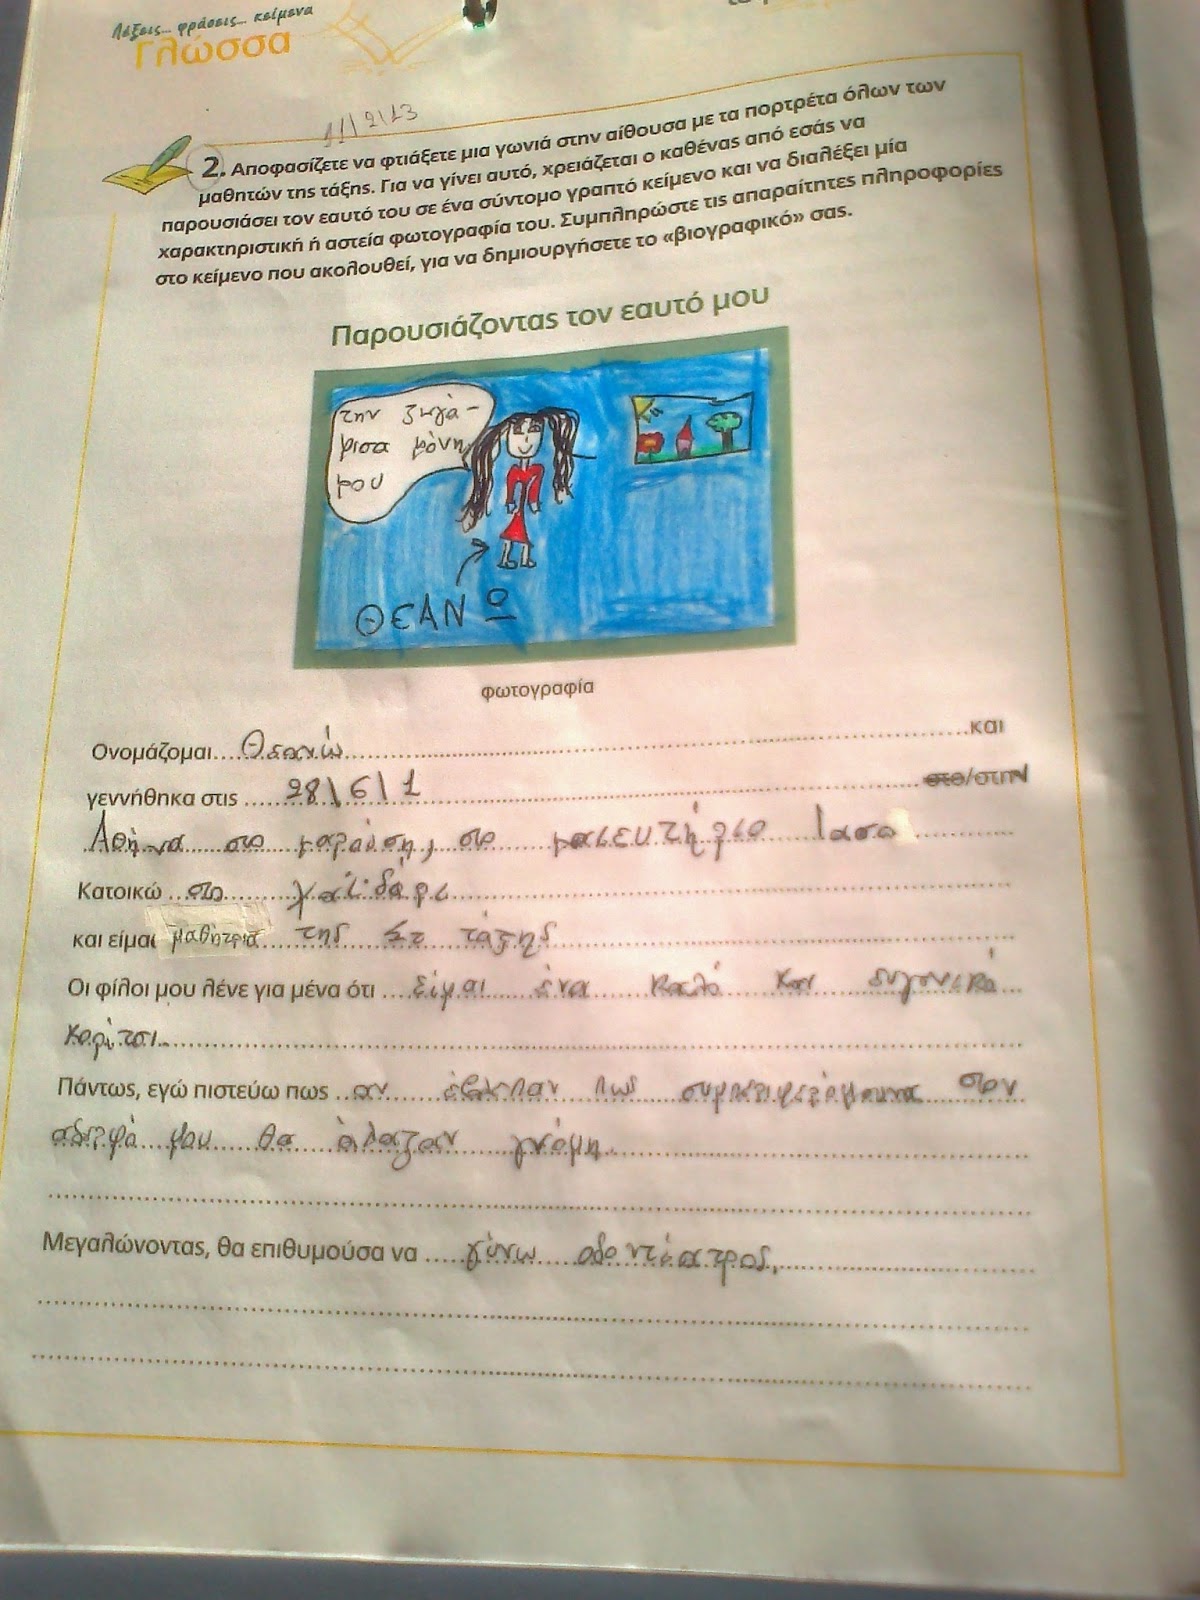 Λέξεις... φράσεις... κείμενα
Γλώσσα
11/2/13
2. Αποφασίζετε να φτιάξετε μια γωνιά στην αίθουσα με τα πορτρέτα όλων των
μαθητών της τάξης. Για να γίνει αυτό, χρειάζεται ο καθένας από εσάς να
παρουσιάσει τον εαυτό του σε ένα σύντομο γραπτό κείμενο και να διαλέξει μία
χαρακτηριστική ή αστεία φωτογραφία του. Συμπληρώστε τις απαραίτητες πληροφορίες
στο κείμενο που ακολουθεί, για να δημιουργήσετε το «βιογραφικό» σας.
Παρουσιάζοντας τον εαυτό μου
την ζωγά-
φισα μόνη
μου
ΘΕΑΝΩ
φωτογραφία
Ονομάζομαι Θεανώ και
γεννήθηκα στις 28/6/1 στο/στην
Αθήνα στο μαρούση, στο μαιευτήριο Ιασο
Κατοικώ στο χαϊδάρι
και είμαι μαθήτρια της Στ τάξης
Οι φίλοι μου λένε για μένα ότι είμαι ένα καλό και ευγενικό
κορίτσι.
Πάντως, εγώ πιστεύω πως αν έβλεπαν πως συμπεριφερόμουνα στον
αδερφό μου θα άλαζαν γνόμη.
Μεγαλώνοντας, θα επιθυμούσα να γύνω οδοντίατρος.